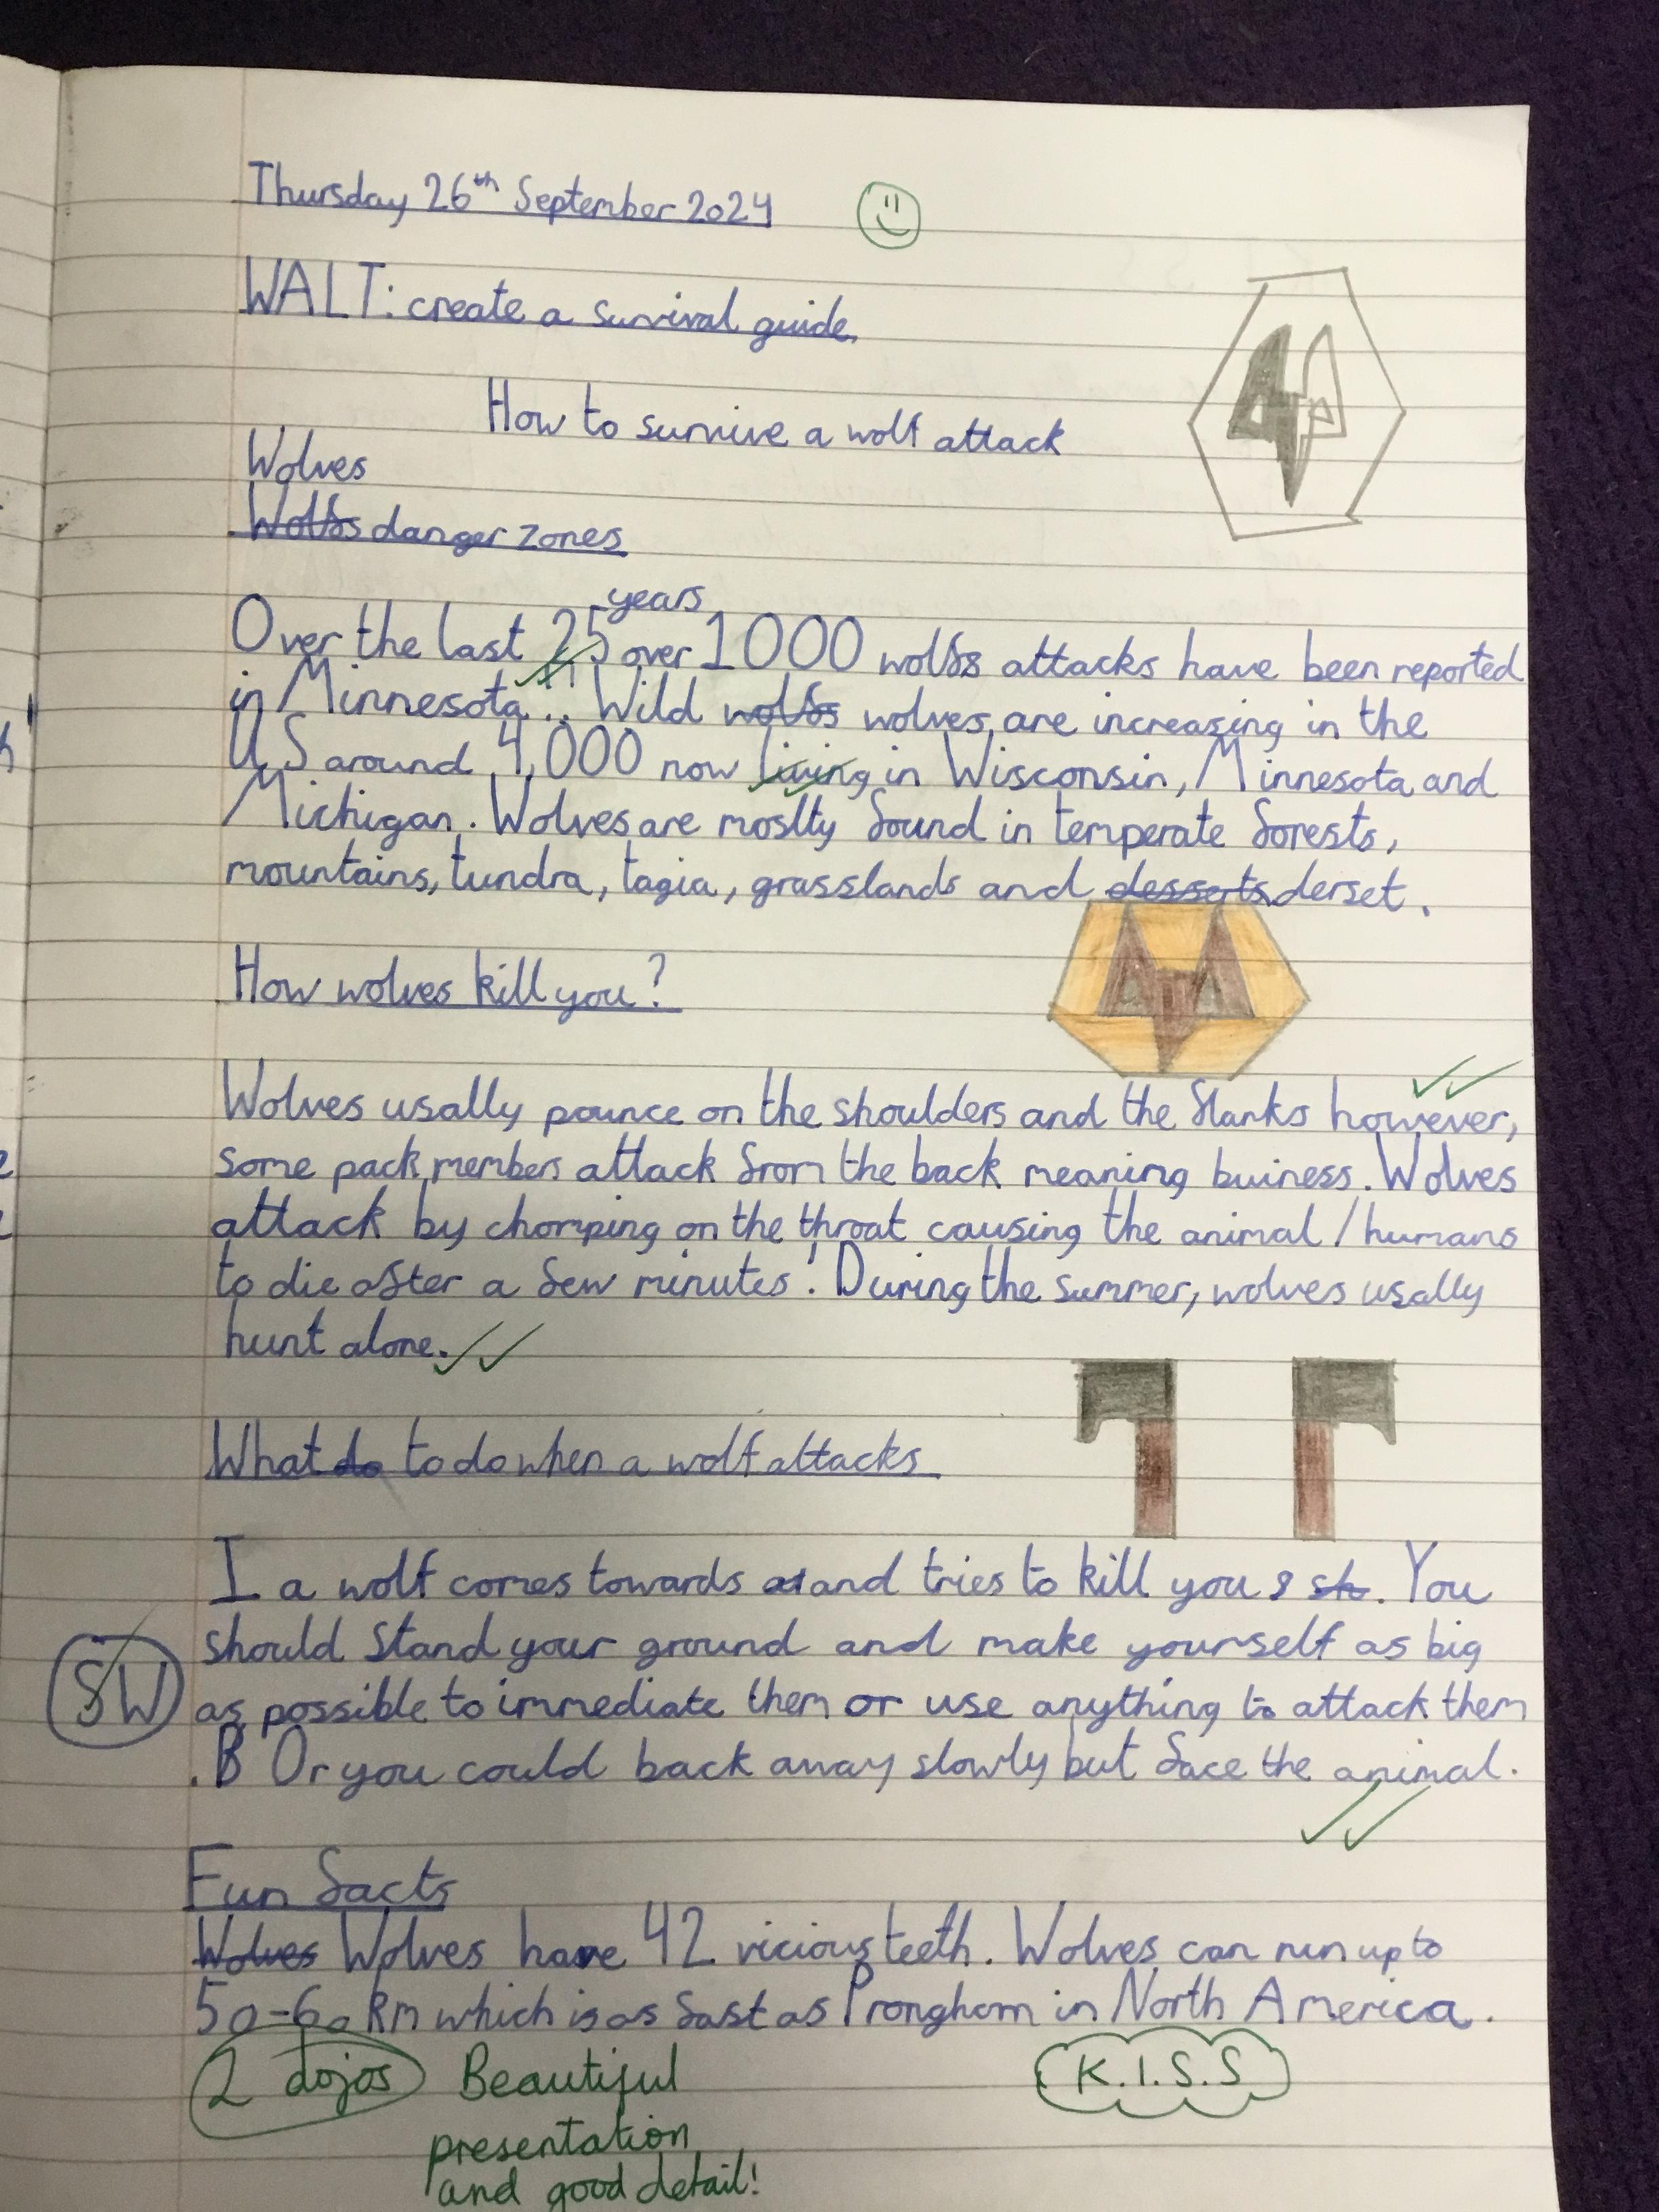 Thursday 26th September 2024
WALT: create a survival guide.
How to survive a wolf attack
Wolves
Wolfs danger zones
years
Over the last 25 over 1000 wolfs attacks have been reported
in Minnesota... Wild wolfs wolves are increasing in the
US around 4,000 now living in Wisconsin, Minnesota and
Michigan. Wolves are moslty found in temperate forests,
mountains, tundra, tagia, grasslands and desserts derset.
How wolves kill you?
Wolves usally pounce on the shoulders and the flanks however,
some pack members attack from the back meaning buiness. Wolves
attack by chomping on the throat causing the animal/humans
to die after a few minutes! During the summer, wolves usally
hunt alone.
What do to do when a wolf attacks
I a wolf comes towards and tries to kill you. You
should stand your ground and make yourself as big
SW as possible to immediate them or use anything to attack them
. B Or you could back away slowly but face the animal.
Fun facts
Wolves Wolves have 42 vicious teeth. Wolves can run up to
50-60 km which is as fast as Pronghorn in North America.
2 dojos Beautiful K.I.S.S
presentation
and good detail!